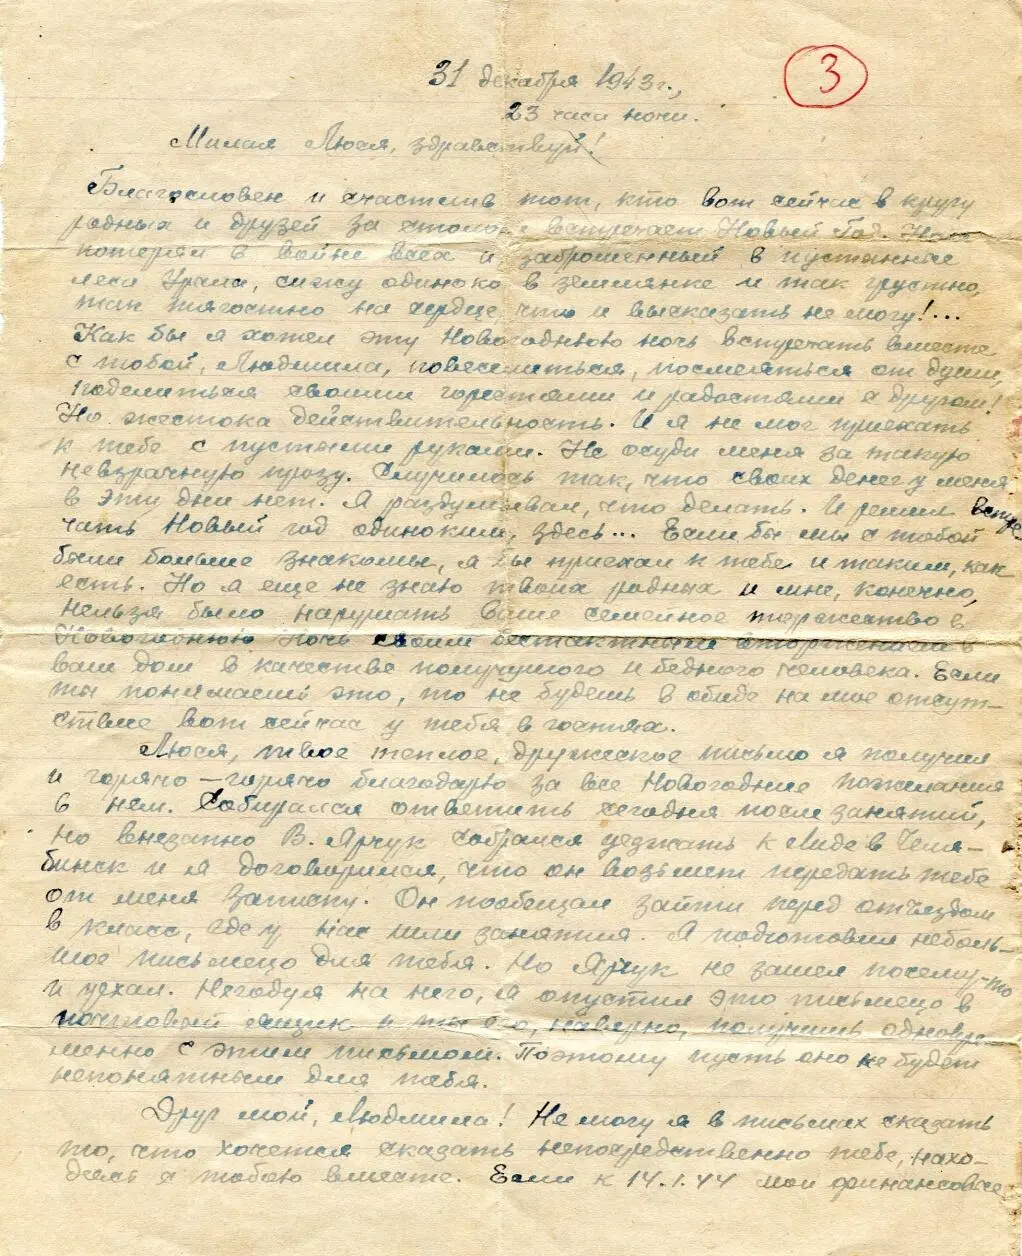 3
31 декабря 1943 г.,
23 часа ночи.
Милая Люся, здравствуй!
Благословен и счастлив тот, кто вот сейчас в кругу
родных и друзей за столом встречает Новый Год. Но я
потерял в войне всех и, заброшенный в пустынные
леса Урала, сижу одиноко в землянке и так грустно,
так тягостно на сердце, что и высказать не могу!...
Как бы я хотел эту Новогоднюю ночь встречать вместе
с тобой, Людмила, повеселиться, посмеяться от души,
поделиться своими горестями и радостями с другом!
Но жестока действительность. И я не мог приехать
к тебе с пустыми руками. Не осуди меня за такую
невзрачную прозу. Случилось так, что своих денег у меня
в эти дни нет. Я раздумывал, что делать. И решил встре
чать Новый год одиноким, здесь... Если бы мы с тобой
были больше знакомы, я бы приехал к тебе и таким, как
есть. Но я еще не знаю твоих родных и мне, конечно,
нельзя было нарушать Ваше семейное торжество в
Новогоднюю ночь своим бестактным вторжением в
ваш дом в качестве получужого и бедного человека. Если
ты понимаешь это, то не будешь в обиде на мое отсут-
ствие вот сейчас у тебя в гостях.
Люся, твое теплое, дружеское письмо я получил
и горячо-горячо благодарю за все Новогодние пожелания
в нем. Собирался ответить сегодня после занятий,
но внезапно В. Ярчук собрался уезжать к Лиде в Челя-
бинск и я договорился, что он возьмет передать тебе
от меня записку. Он пообещал зайти перед отъездом
в класс, где у нас шли занятия. Я подготовил неболь-
шое письмецо для тебя. Но Ярчук не зашел почему-то
и уехал. Негодуя на него, я опустил это письмецо в
почтовый ящик и ты его, наверно, получишь одновре
менно с этим письмом. Поэтому пусть оно не будет
непонятным для тебя.
Друг мой, Людмила! Не могу я в письмах сказать
то, что хочется сказать непосредственно тебе, нахо-
дясь с тобою вместе. Если к 14.1.44 мои финансовые